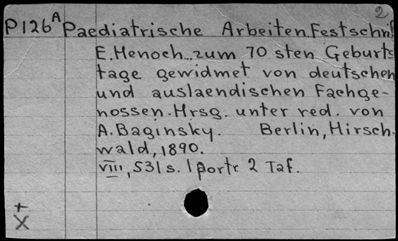 2
P126A Paediatrische Arbeiten. Festschrif
E. Henoch...zum 70 sten Geburts
tage gewidmet von deutschen
und auslaendischen Fachge-
nossen. Hrsg. unter red. von
A. Baginsky. Berlin, Hirsch-
wald, 1890.
VIII, 531 s. 1 portr 2 Taf.
+
X